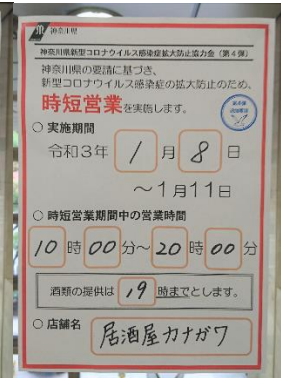 神奈川県
神奈川県新型コロナウイルス感染症拡大防止協力金（第4弾）
神奈川県の要請に基づき、
新型コロナウイルス感染症の拡大防止のため、
時短営業を実施します。
○ 実施期間
令和3年 1月 8日
～1月11日
○ 時短営業期間中の営業時間
10時00分～20時00分
酒類の提供は 19時までとします。
○ 店舗名 居酒屋カナガワ